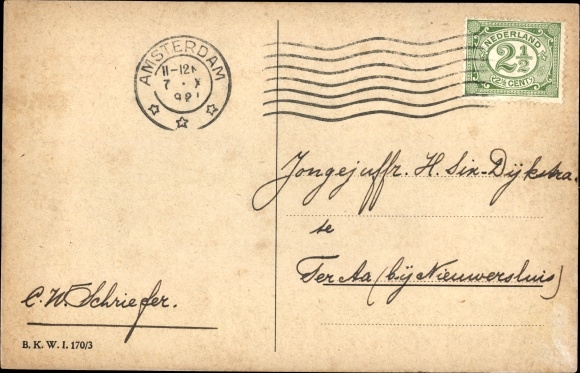 AMSTERDAM
11-12
7 · X
NEDERLAND
2½
(2½ CENT)
Jongejuffr. H. Six-Dijkstra.
te
Ter Aa (bij Nieuwersluis)
C. W. Schriefer.
B. K. W. I. 170/3